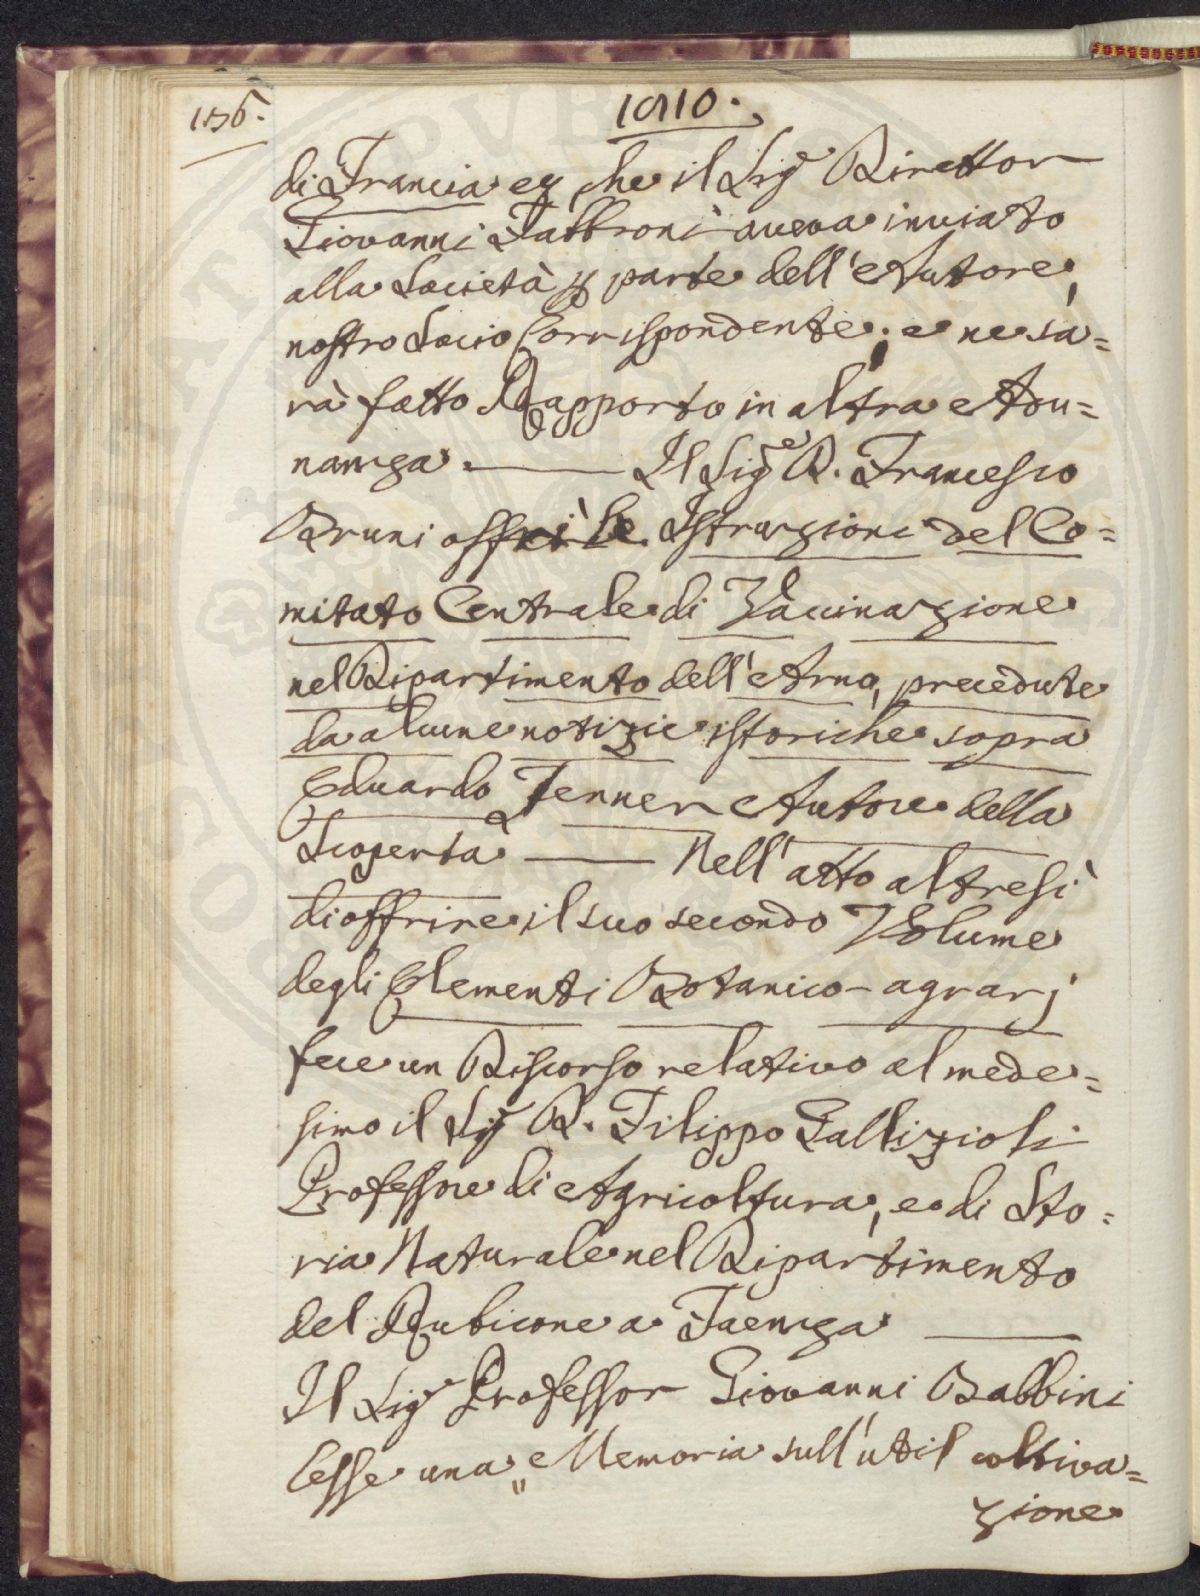 156.
1810.
di Francia ec che il Sig.r Direttor
Giovanni Fabbroni aveva inviato
alla Società p parte dell'Autore,
nostro Socio Corrispondente; e ne sa=
rà fatto Rapporto in altra Adu=
nanza. — Il Sig.e D. Francesco
Bruni offrì le Istruzioni del Co=
mitato Centrale di Vaccinazione
nel Dipartimento dell'Arno, precedute
da alcune notizie istoriche sopra
Eduardo Jenner Autore della
Scoperta — Nell'atto altresì
di offrire il suo secondo Volume
degli Elementi Botanico-agrarj
fece un Discorso relativo al mede=
simo il Sig.r D. Filippo Gallizioli
Professore di Agricoltura, e di Sto=
ria Naturale nel Dipartimento
del Rubicone a Faenza —
Il Sig.r Professor Giovanni Babbini
lesse una „ Memoria sull'util coltiva=
zione